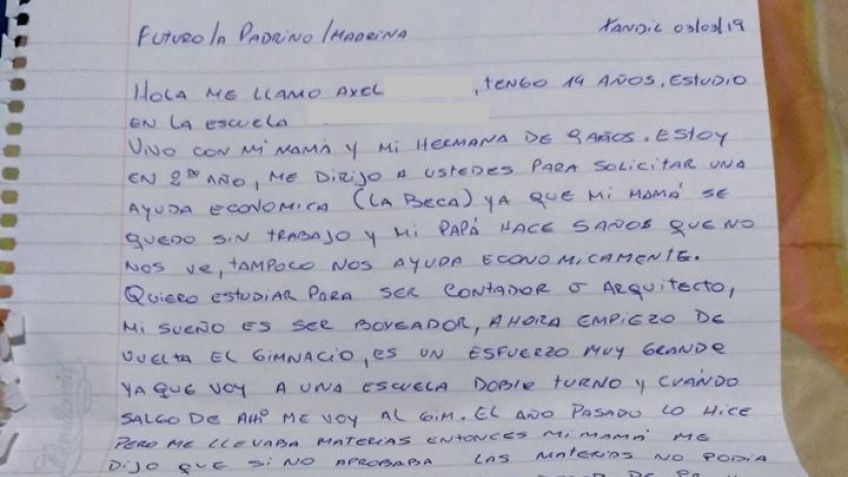 FUTURO/A PADRINO/MADRINA TANDIL 03/03/19
HOLA ME LLAMO AXEL , TENGO 14 AÑOS, ESTUDIO
EN LA ESCUELA
VIVO CON MI MAMÁ Y MI HERMANA DE 9 AÑOS. ESTOY
EN 2DO AÑO, ME DIRIJO A USTEDES PARA SOLICITAR UNA
AYUDA ECONOMICA (LA BECA) YA QUE MI MAMÁ SE
QUEDO SIN TRABAJO Y MI PAPÁ HACE 5 AÑOS QUE NO
NOS VE, TAMPOCO NOS AYUDA ECONOMICAMENTE.
QUIERO ESTUDIAR PARA SER CONTADOR O ARQUITECTO,
MI SUEÑO ES SER BOXEADOR, AHORA EMPIEZO DE
VUELTA EL GIMNACIO, ES UN ESFUERZO MUY GRANDE
YA QUE VOY A UNA ESCUELA DOBLE TURNO Y CUÁNDO
SALGO DE AHÍ ME VOY AL GIM. EL AÑO PASADO LO HICE
PERO ME LLEVABA MATERIAS ENTONCES MI MAMÁ ME
DIJO QUE SI NO APROBABA LAS MATERIAS NO PODIA